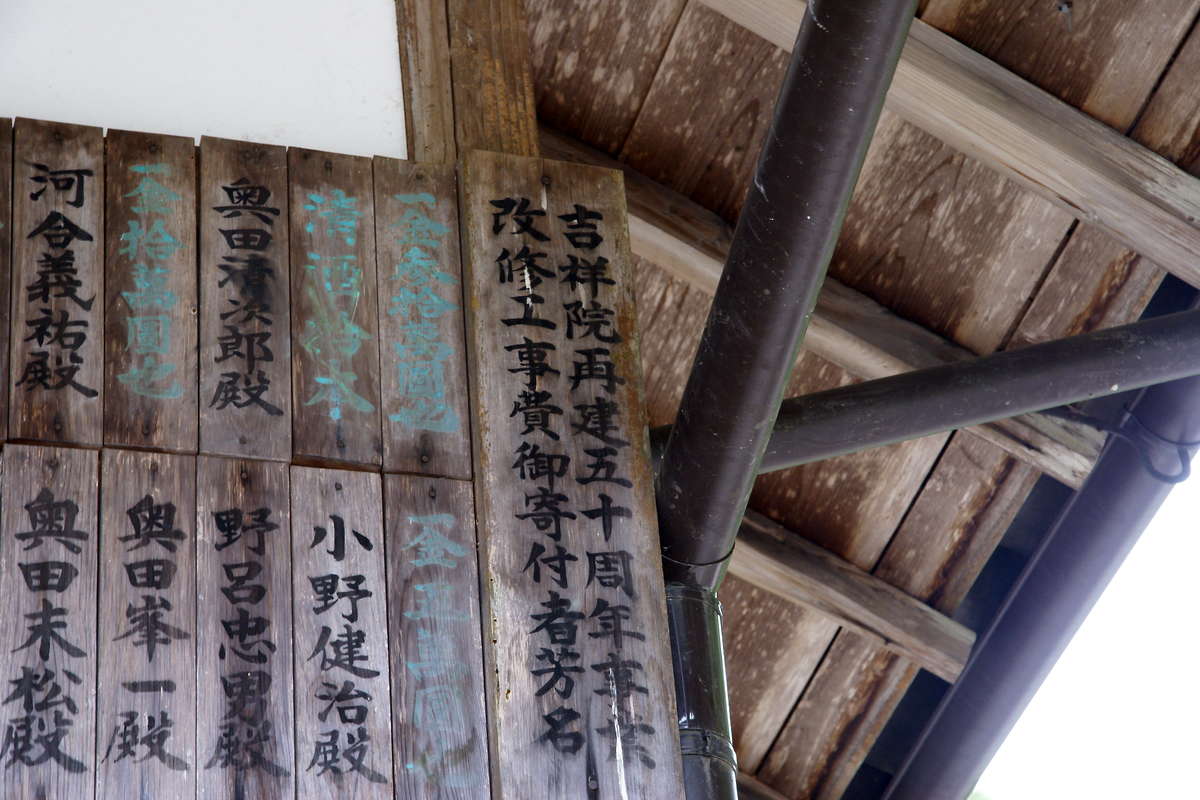 吉祥院再建五十周年事業
改修工事費御寄付者芳名
一金参拾萬圓也
清酒拾本
奥田清次郎殿
一金拾萬圓也
河合義祐殿
小野健治殿
野呂忠男殿
奥田峯一殿
奥田末松殿